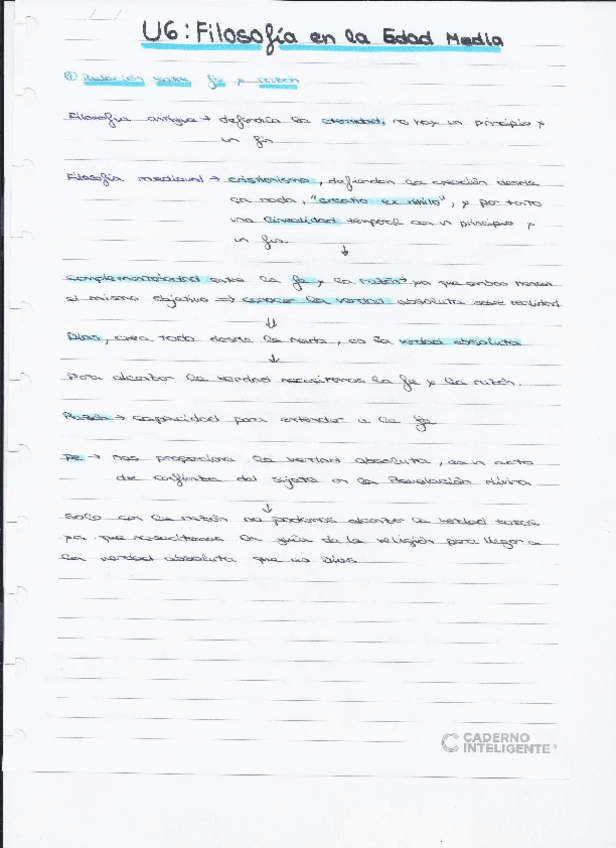 U6: Filosofía en la Edad Media
① Relación entre fe y razón
Filosofía antigua → defendía la eternidad, no hay un principio y
un fin
Filosofía medieval → cristianismo, defienden la creación desde
la nada, "creatio ex nihilo", y por tanto
una linealidad temporal con un principio y
un fin.
↓
Complementariedad entre la fe y la razón → ya que ambas tienen
el mismo objetivo ⇒ conocer la verdad absoluta sobre realidad
⇓
Dios, crea todo desde la nada, es la verdad absoluta
↓
Para alcanzar la verdad necesitamos la fe y la razón.
Razón → capacidad para entender a la fe
Fe → nos proporciona la verdad absoluta, es un acto
de confianza del sujeto en la Revelación divina
↓
Solo con la razón no podemos alcanzar la verdad
ya que necesitamos la guía de la religión para llegar a
la verdad absoluta que es Dios.
CADERNO
INTELIGENTE